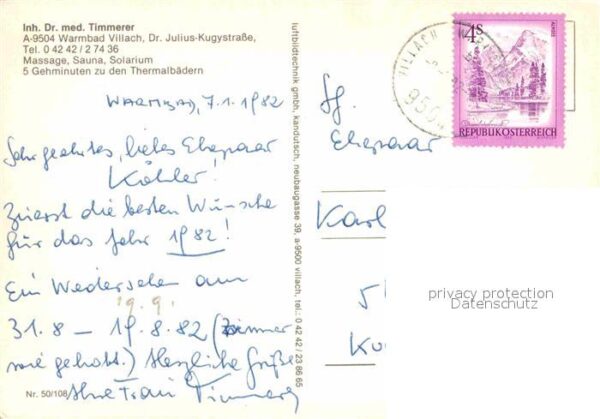 Inh. Dr. med. Timmerer
A-9504 Warmbad Villach, Dr. Julius-Kugystraße,
Tel. 0 42 42 / 2 74 36
Massage, Sauna, Solarium
5 Gehminuten zu den Thermalbädern
Warmbad, 7.1.1982
Sehr geehrtes, liebes Ehepaar
Köhler!
Zuerst die besten Wünsche
für das Jahr 1982!
Ein Wiedersehen am
19.9.
31.8 – 19.8.82 (Zimmer
wie gehabt.) Herzliche Grüße
Ihre Frau Timmerer
Nr. 50/108
luftbildtechnik gmbh, kandutsch, neubaugasse 39, a-9500 villach, tel.: 0 42 42 / 23 86 65
VILLACH
9504
4S
REPUBLIK ÖSTERREICH
Sg.
Ehepaar
Karl
5
privacy protection
Datenschutz